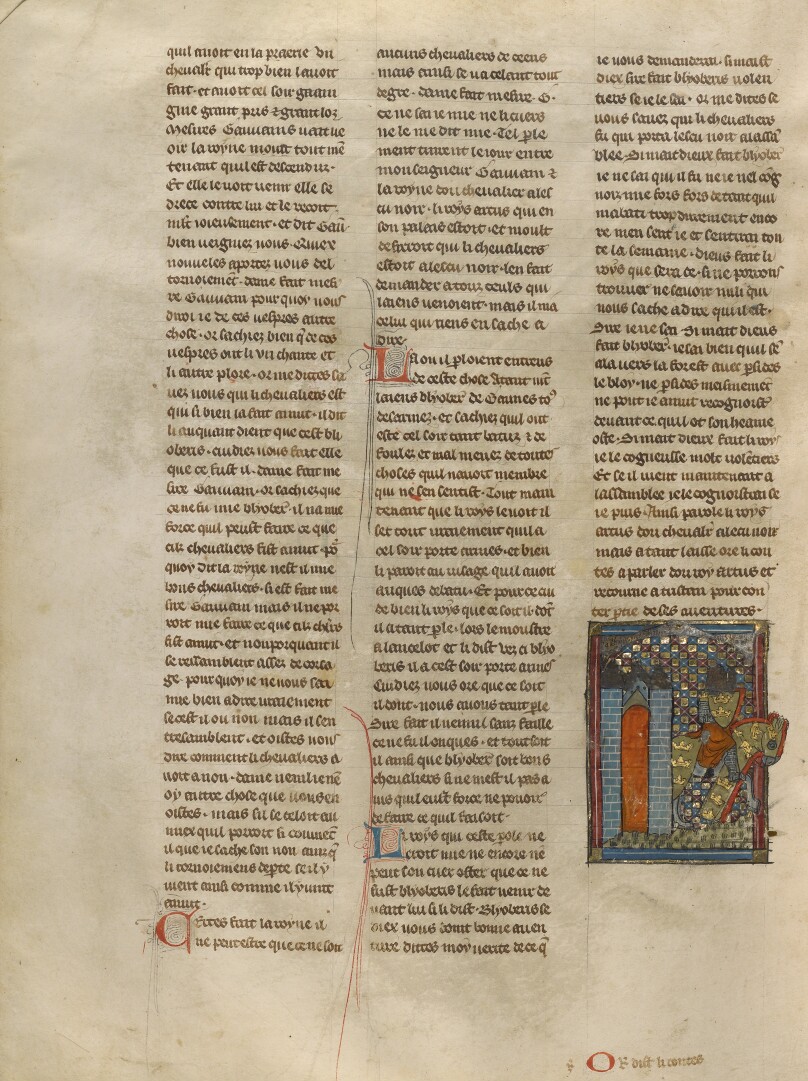 quil auoit en la praerie Vn
cheualr qui trop bien lauoit
fait · et auoit cel soir gaain
gnie grant pris ⁊ grant loz
Mesires Gauuains uait ue
oir la royne moult tout
tenant quil est descenduz ·
Et elle le uoit uenir elle se
drece contre lui et le recoit
ml̃t ioieusement · et dit Gau
bien uegniez uous · Quiex
nouueles aportez uous del
tornoiemẽt · dame fait mesi
re Gauuain pour quoy uous
diroi ie de ces uespres autre
chose · or sachiez bien q̃ de ces
uespres ont li vn chante et
li autre plore · or me dittes sa
uez uous qui li cheualiers est
qui si bien la fait anuit · il dit
li auquant dient que cest bli
oberis · cuidiez uous fait elle
que ce fust il · dame fait me
sire Gauuain · or sachiez que
ce ne fu mie blyober · il na mie
force quil peust faire ce que
cilz cheualiers fist anuit · po
quoy dit la royne nest il mie
bons cheualiers · si est fait me
sire Gauuain mais il ne por
roit mie faire ce que cilz chr̃s
fist anuit · et nonporquant il
se ressamblent assez de corsa
ge · pour quoy ie ne uous sai
mie bien a dire uraiement
se cest il ou non mais il sen
tresamblent · et oistes uous
dire comment li cheualiers a
uoit a non · dame nenil ie nẽ
oy autre chose que uous en
oistes · mais sil se celoit au
miex quil porroit si conuiẽt
il que ie sache son non ainz q̃
li tornoiemens depte se il y
uient ainsi comme il y uint
anuit ·
Certes fait la royne il
ne peut estre que ce ne soit
aucuns cheualiers de ceens
mais ainsi se ua celant tout
de gre · dame fait mesire · G ·
ce ne sai ie mie ne li cuers
ne le me dit mie · Tel ꝑle
ment tinrent le ior entre
mon seigneur Gauuain ⁊
la royne dou cheualier a les
cu noir · li roys artus qui en
son palais estoit · et moult
desirroit qui li cheualiers
estoit a lescu noir · sen fait
demander a touz ceuls qui
laiens uenoient · mais il ni a
celui qui riens en sache a
dire ·
La ou il ploient entreus
de ceste chose Atant
laiens blyober de Gaunes toz
desarmez · et sachiez quil ont
este cel soir tant batuz ⁊ de
foulez et mal menez de toutes
choses quil nauoit membre
qui ne sen sentist · Tout main
tenant que li roys le uoit il
set tout uraiement quil a
cel soir porte armes · et bien
li paroit au uisage quil auoit
auques debatu · Et pour ce cui
de bien li roys que ce soit il dõt
il a tant ꝑle · lors le moustre
a lancelot et li dist uez ci blyo
beris il a cest soir porte armes
Cuidiez uous ore que ce soit
il dont · nous auons tant ꝑle
Sire fait il nennil sanz faille
ce ne fu il onques · et tout soit
il ainsi que blyober soit bons
cheualiers si ne mest il pas a
uis quil eust force ne pouoir
de faire ce quil faisoit ·
Li roys qui ceste pole ne
croit mie ne encore ne
peut son cuer oster que ce ne
fust blyoberis le fait uenir de
uant lui si li dist · Blyoberis se
diex uous doint bonne auen
ture dittes moy uerite de ce q̃
ie uous demanderai · si maist
diex sire fait blyoberis uolen
tiers se ie le sai · or me dites se
uous sauez qui li cheualiers
fu qui porta lescu noir a lassã
blee · Si mait dieux fait blyober
ie ne sai qui il fu ne ie nel cog
nois mie fors fors de tant quil
mabati trop durement enco
re men sent ie et sentirai tou
te la semaine · dieus fait li
roys que sera ce · si ne porrons
trouuer ne sauoir nuli qui
nous sache a dire qui il est ·
Sire ie ne sai · Si mait dieus
fait blyober · ie sai bien quil sẽ
ala uers la forest auec ꝑsides
le bloy · ne ꝑsides meismemet
ne pout ie anuit recognoistre
deuant ce quil ot son heaume
oste · Si mait dieux fait li roy
ie le cogneusse molt uolẽtiers
Et se il uient maintenant a
lassamblee ie le cognoistrai se
ie puis · Ainsi parole li roys
artus dou cheualr̃ a lescu noir
mais a tant laisse ore li con
tes a parler dou roy artus et
retourne a tristan pour con
ter ptie de ses auentures ·
Or dist li contes